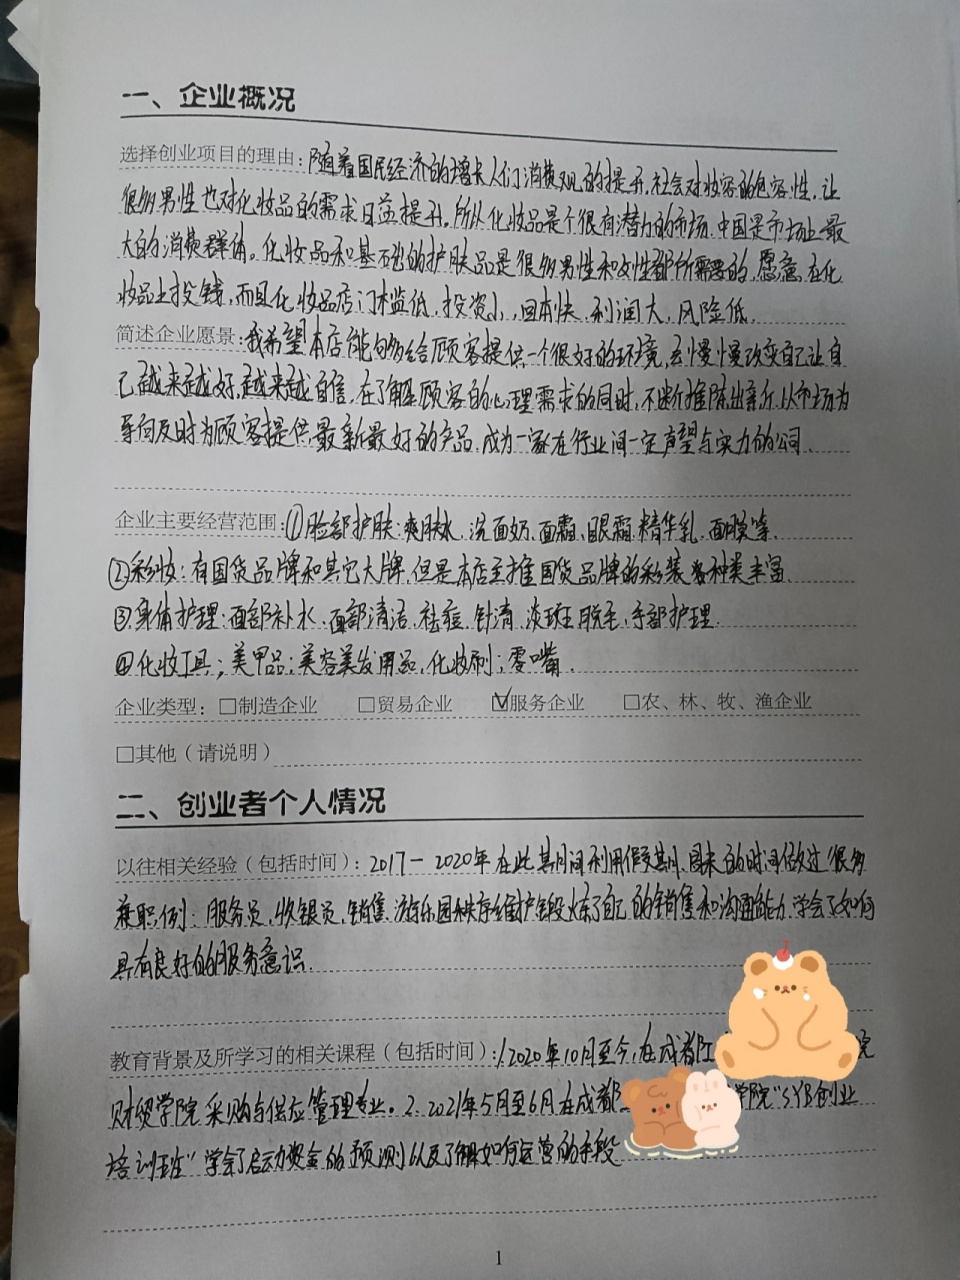 一、企业概况
选择创业项目的理由：随着国民经济的增长人们消费观的提升，社会对妆容的包容性，让
很多男性也对化妆品的需求日益提升，所以化妆品是个很有潜力的市场，中国是市场上最
大的消费群体。化妆品和基础的护肤品是很多男性和女性都所需要的，愿意在化
妆品上投钱，而且化妆品店门槛低，投资小，回本快，利润大，风险低。
简述企业愿景：我希望本店能够给顾客提供一个很好的环境，去慢慢改变自己让自
己越来越好，越来越自信，在了解顾客的心理需求的同时，不断推陈出新，以市场为
导向及时为顾客提供最新最好的产品，成为一家在行业间一定声望与实力的公司、
企业主要经营范围：①脸部护肤：爽肤水、洗面奶、面霜、眼霜、精华乳、面膜等、
②彩妆：有国货品牌和其它大牌，但是本店主推国货品牌的彩装 种类丰富
③身体护理：面部补水、面部清洁、祛痘、针清、淡斑、脱毛、手部护理.
④化妆工具；美甲品；美容美发用品，化妆刷；零嘴.
企业类型：□制造企业 □贸易企业 ☑服务企业 □农、林、牧、渔企业
□其他（请说明）
二、创业者个人情况
以往相关经验（包括时间）：2017－2020年在此期间利用假期、周末的时间做过很多
兼职，例：服务员、收银员、销售、游乐园秩序维护 锻炼了自己的销售和沟通能力，学会了如何
具有良好的服务意识.
教育背景及所学习的相关课程（包括时间）：1.2020年10月至今，在成都 院
财贸学院采购与供应管理专业。2.2021年5月至6月在成都 学院“SYB创业
培训班”学会了启动资金的预测以及了解如何运营的手段
1